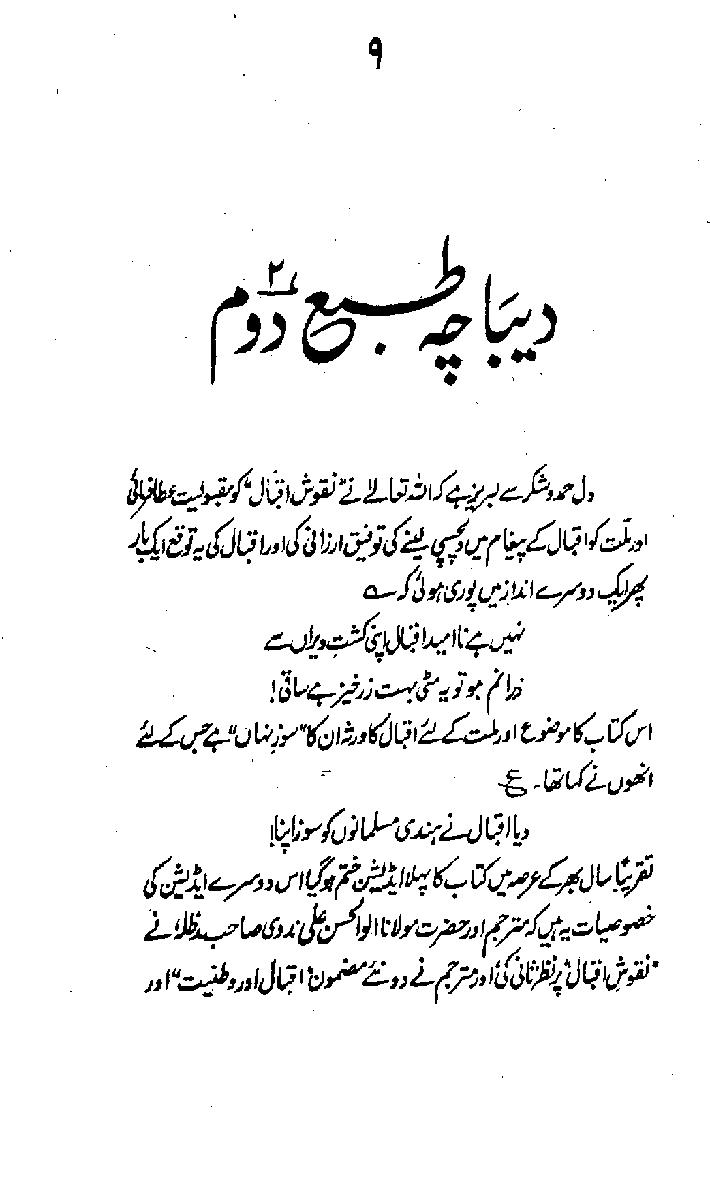 ۹
دیباچہ طبع دوم ۲
دل حمد و شکر سے لبریز ہے کہ اللہ تعالےٰ نے "نقوش اقبال" کو مقبولیت عطا فرمائی
اور ملّت کو اقبال کے پیغام میں دلچسپی لینے کی توفیق ارزانی کی اور اقبال کی یہ توقع ایک بار
پھر ایک دوسرے انداز میں پوری ہوئی کہ ؎
نہیں ہے ناامید اقبال اپنی کشتِ ویراں سے
ذرا نم ہو تو یہ مٹی بہت زرخیز ہے ساقی!
اس کتاب کا موضوع اور ملت کے لئے اقبال کا ورثہ ان کا "سوز نہاں" ہے جس کے لئے
انھوں نے کہا تھا۔ ع
دیا اقبال نے ہندی مسلمانوں کو سوز اپنا!
تقریباً سال بھر کے عرصہ میں کتاب کا پہلا ایڈیشن ختم ہو گیا اس دوسرے ایڈیشن کی
خصوصیات یہ ہیں کہ مترجم اور حضرت مولانا ابوالحسن علی ندوی صاحب مدظلہٗ نے
"نقوش اقبال" پر نظر ثانی کی، اور مترجم نے دو نئے مضمون "اقبال اور وطنیت" اور